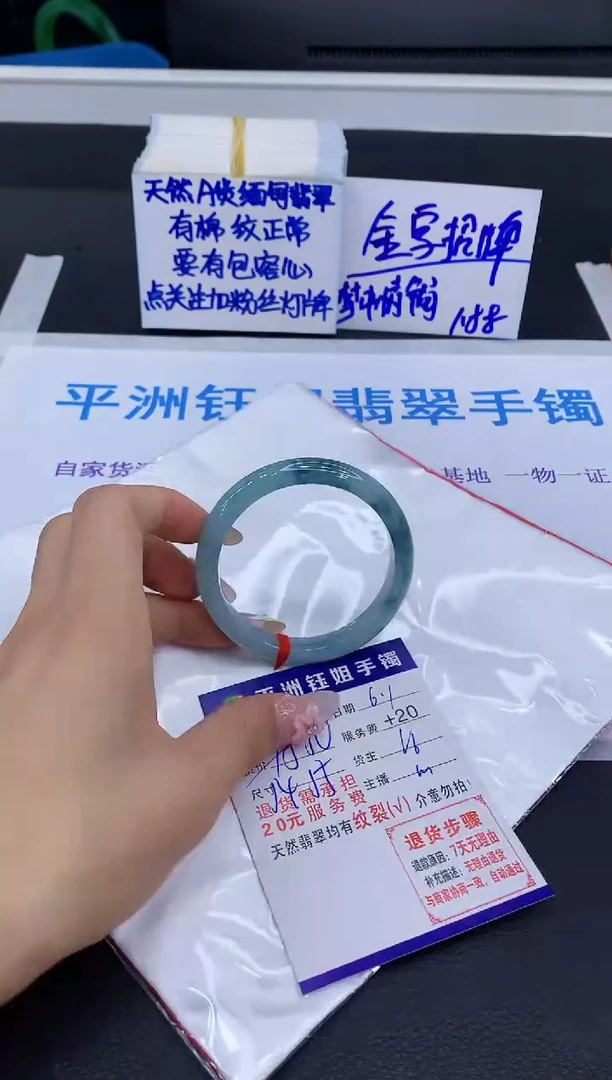 天然A货缅甸翡翠
有棉纹正常
要有包容心
点关注加粉丝灯牌
金字招牌
平洲钰姐翡翠手镯
自家货源
基地 一物一证
平洲钰姐手镯
日期 6.1
服务费 +20
货主
尺寸
主播
退货需承担
20元服务费
天然翡翠均有纹裂(√) 介意勿拍!
退货步骤
退款原因：7天无理由
补充描述：无理由退货
与商家协商一致，自动通过